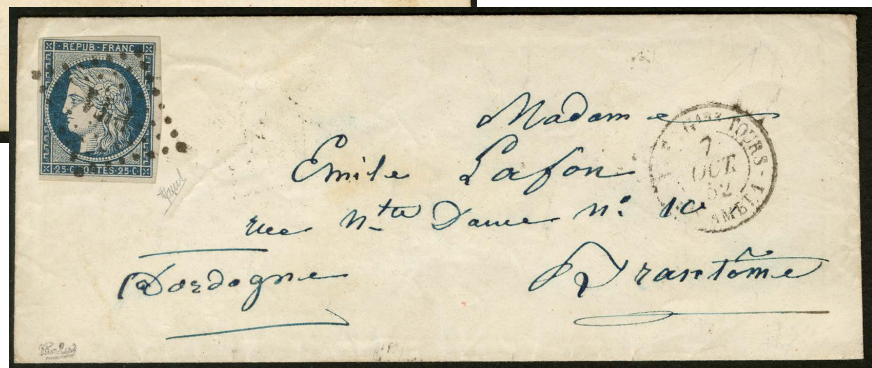 REPUB·FRANC
25·C·POSTES·25·C
Madame
Emile Lafon
rue Nte Dame N° 10
(Dordogne
Brantôme
TOURS
7
OCT.
52